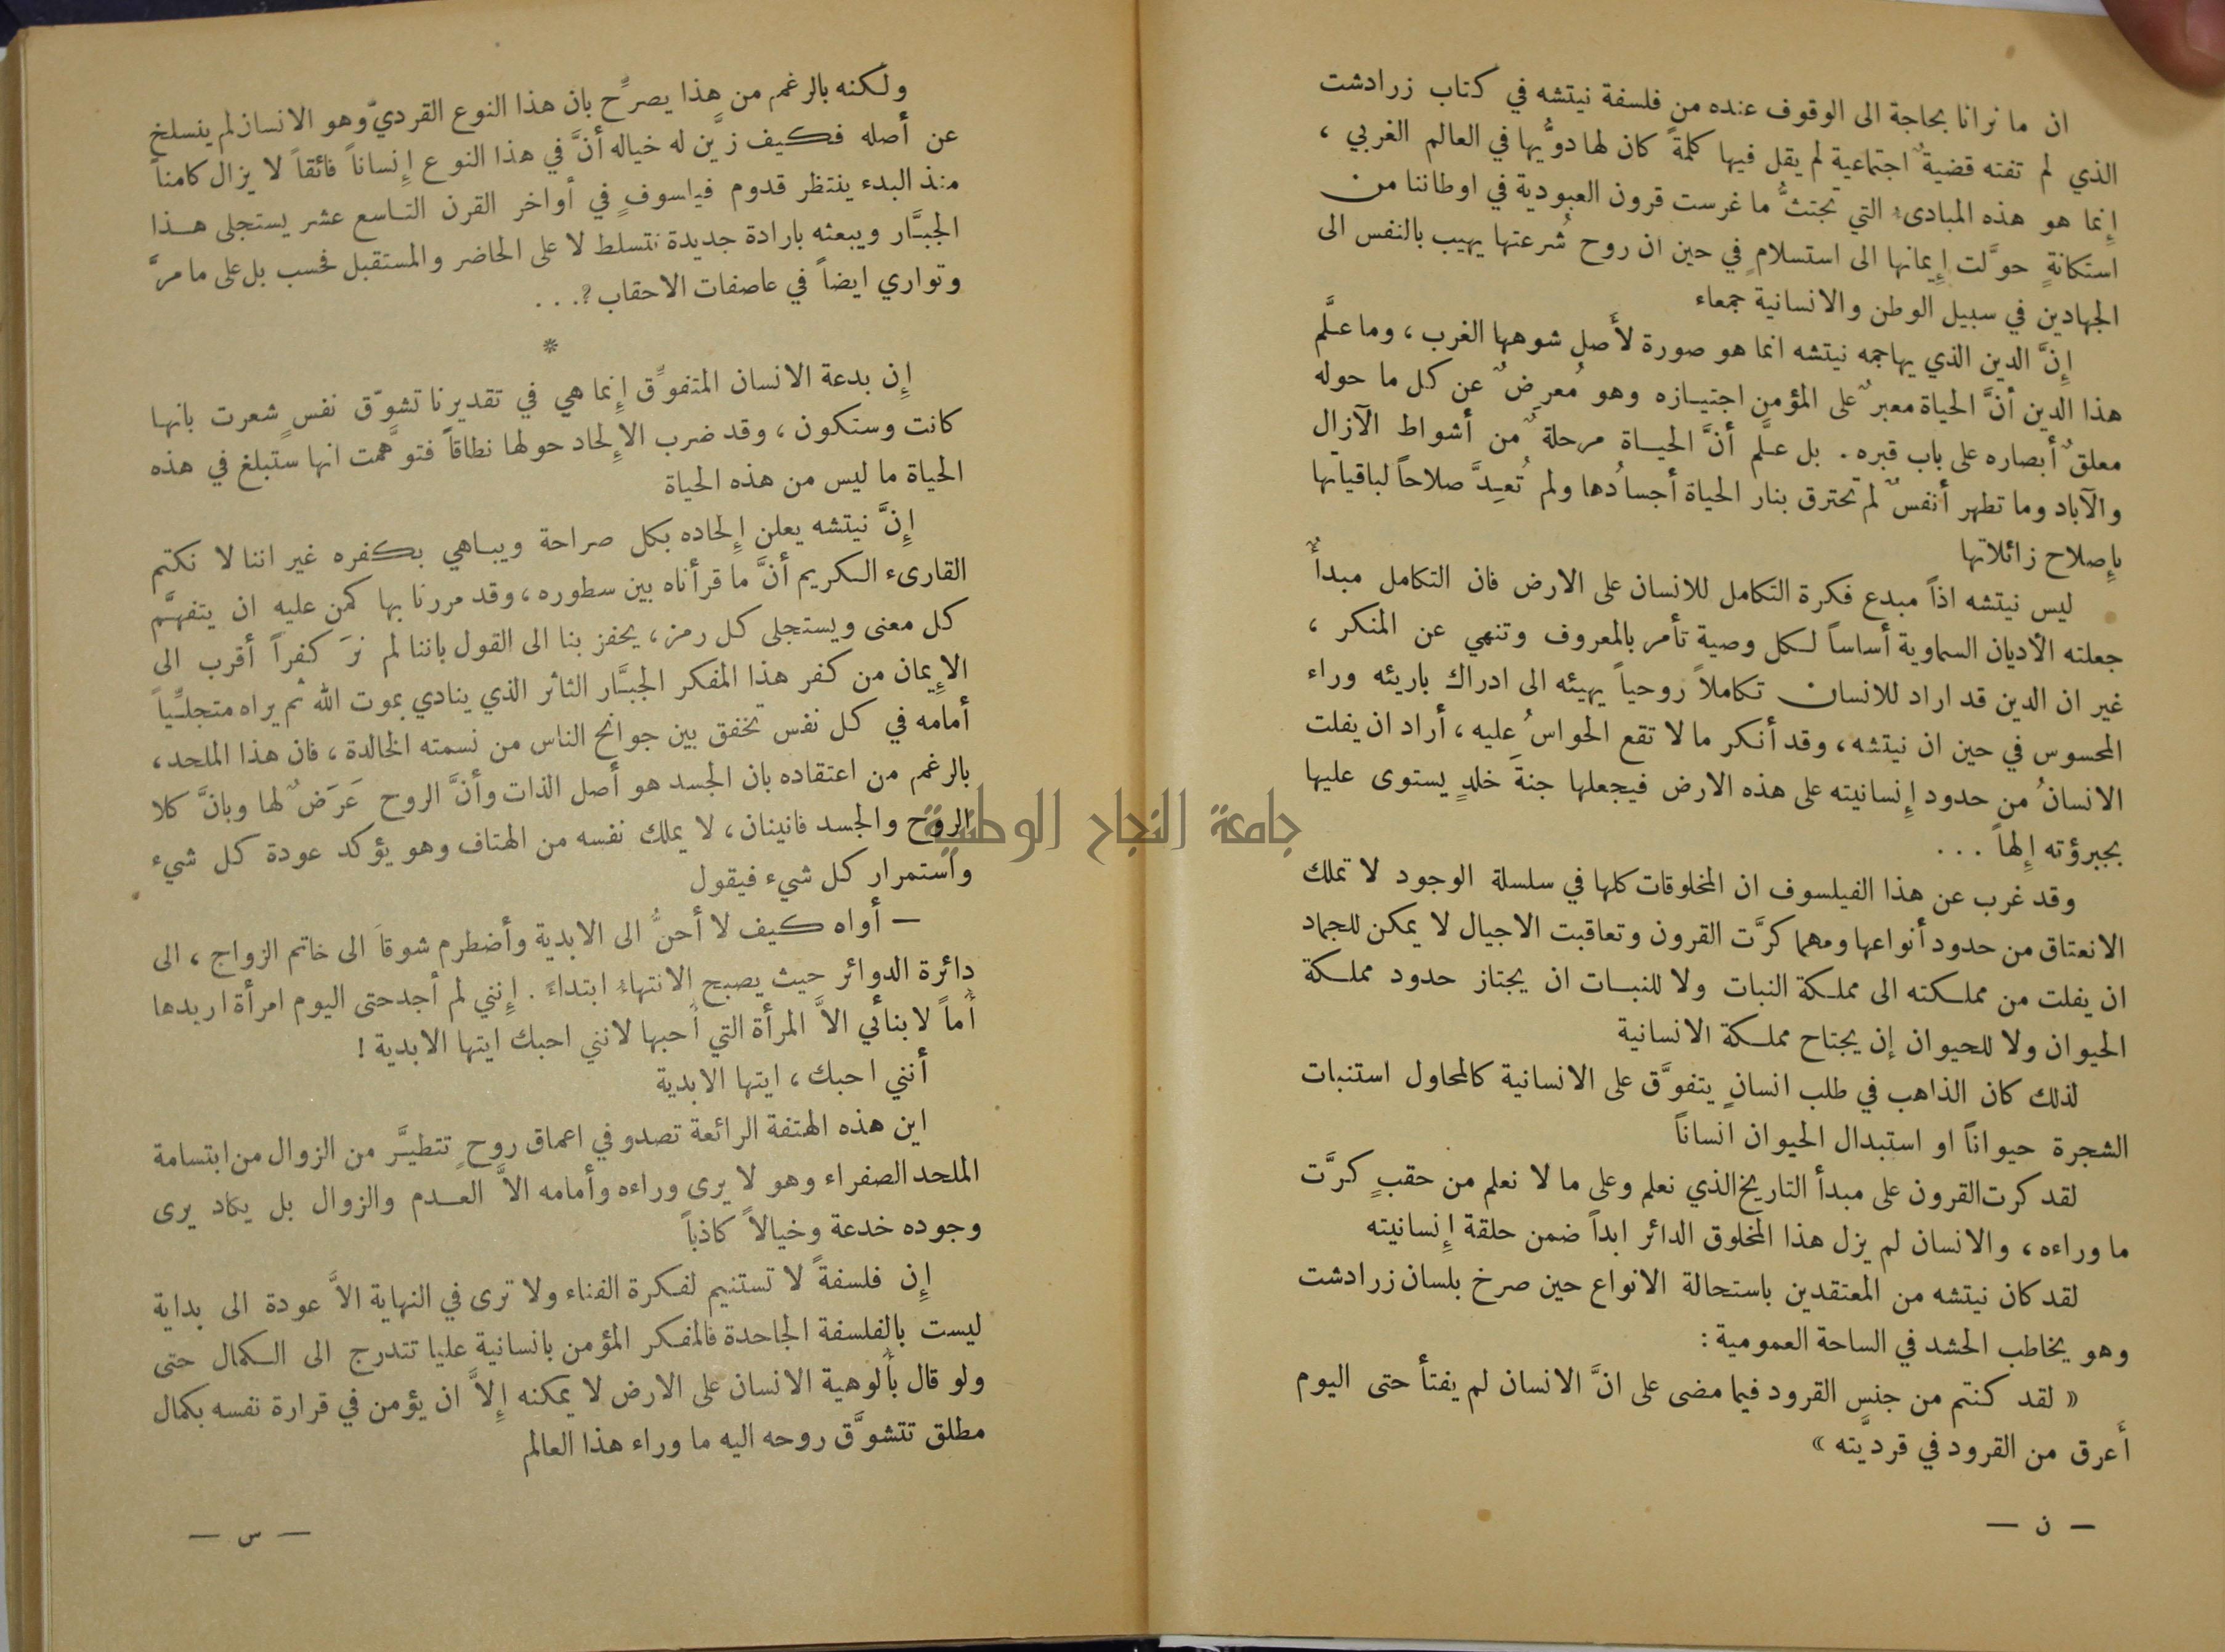 ان ما نرانا بحاجة الى الوقوف عنده من فلسفة نيتشه في كتاب زرادشت
الذي لم تفته قضيةٌ اجتماعية لم يقل فيها كلمةً كان لها دويُّها في العالم الغربي ،
إِنما هو هذه المبادىءُ التي تجتثُّ ما غرست قرون العبودية في اوطاننا من
استكانةٍ حوَّلت إِيمانها الى استسلامٍ في حين ان روح شُرعتها يهيب بالنفس الى
الجهادين في سبيل الوطن والانسانية جمعاء
إِنَّ الدين الذي يهاجمه نيتشه انما هو صورة لأَصلٍ شوهها الغرب ، وما علَّم
هذا الدين أنَّ الحياة معبرٌ على المؤمن اجتيازه وهو مُعرضٌ عن كل ما حوله
معلقٌ أبصاره على باب قبره . بل علَّم أنَّ الحياة مرحلةٌ من أشواط الآزال
والآباد وما تطهر أنفسٌ لم تحترق بنار الحياة أجسادُها ولم تُعِدَّ صلاحاً لباقياتها
بإِصلاح زائلاتها
ليس نيتشه اذاً مبدع فكرة التكامل للانسان على الارض فان التكامل مبدأٌ
جعلته الأديان السماوية أساساً لكل وصية تأمر بالمعروف وتنهي عن المنكر ،
غير ان الدين قد اراد للانسان تكاملاً روحياً يهيئه الى ادراك باريئه وراء
المحسوس في حين ان نيتشه ، وقد أنكر ما لا تقع الحواسُ عليه ، أراد ان يفلت
الانسانُ من حدود إِنسانيته على هذه الارض فيجعلها جنةَ خلدٍ يستوى عليها
بجبرؤته إِلهاً ...
وقد غرب عن هذا الفيلسوف ان المخلوقات كلها في سلسلة الوجود لا تملك
الانعتاق من حدود أنواعها ومهما كرَّت القرون وتعاقبت الاجيال لا يمكن للجماد
ان يفلت من مملكته الى مملكة النبات ولا للنبات ان يجتاز حدود مملكة
الحيوان ولا للحيوان إن يجتاح مملكة الانسانية
لذلك كان الذاهب في طلب انسانٍ يتفوَّق على الانسانية كالمحاول استنبات
الشجرة حيواناً او استبدال الحيوان انساناً
لقد كرت القرون على مبدأ التاريخ الذي نعلم وعلى ما لا نعلم من حقبٍ كرَّت
ما وراءه ، والانسان لم يزل هذا المخلوق الدائر ابداً ضمن حلقة إِنسانيته
لقد كان نيتشه من المعتقدين باستحالة الانواع حين صرخ بلسان زرادشت
وهو يخاطب الحشد في الساحة العمومية :
« لقد كنتم من جنس القرود فيما مضى على انَّ الانسان لم يفتأ حتى اليوم
أعرق من القرود في قرديَّته »
— ن —
ولكنه بالرغم من هذا يصرِّح بان هذا النوع القرديّ وهو الانسان لم ينسلخ
عن أصله فكيف زيَّن له خياله أنَّ في هذا النوع إِنساناً فائقاً لا يزال كامناً
منذ البدء ينتظر قدوم فيلسوفٍ في أواخر القرن التاسع عشر يستجلى هذا
الجبَّار ويبعثه بارادة جديدة نتسلط لا على الحاضر والمستقبل فحسب بل على ما مرَّ
وتواري ايضاً في عاصفات الاحقاب ؟...
*
إِن بدعة الانسان المتفوّق إِنما هي في تقديرنا تشوّق نفسٍ شعرت بانها
كانت وستكون ، وقد ضرب الإِلحاد حولها نطاقاً فتوهَّمت انها ستبلغ في هذه
الحياة ما ليس من هذه الحياة
إِنَّ نيتشه يعلن إِلحاده بكل صراحة ويباهي بكفره غير اننا لا نكتم
القارىء الكريم أنَّ ما قرأناه بين سطوره ، وقد مررنا بها كمن عليه ان يتفهَّم
كل معنى ويستجلى كل رمز ، يحفز بنا الى القول باننا لم نرَ كفراً أقرب الى
الإِيمان من كفر هذا المفكر الجبَّار الثائر الذي ينادي بموت الله ثم يراه متجلّياً
أمامه في كل نفس تخفق بين جوانح الناس من نسمته الخالدة ، فان هذا الملحد ،
بالرغم من اعتقاده بان الجسد هو أصل الذات وأنَّ الروح عَرَضٌ لها وبانَّ كلا
الروح والجسد فانينان ، لا يملك نفسه من الهتاف وهو يؤكد عودة كل شيء
واستمرار كل شيء فيقول
— أواه كيف لا أحنُّ الى الابدية وأضطرم شوقاً الى خاتم الزواج ، الى
دائرة الدوائر حيث يصبح الانتهاءُ ابتداءً . إِنني لم أجد حتى اليوم امرأة اريدها
أُماً لابنأبي الاَّ المرأة التي أُحبها لانني احبك ايتها الابدية !
أنني احبك ، ايتها الابدية
اين هذه الهتفة الرائعة تصدو في اعماق روحٍ تتطيَّر من الزوال من ابتسامة
الملحد الصفراء وهو لا يرى وراءه وأمامه الاَّ العدم والزوال بل يكاد يرى
وجوده خدعة وخيالاً كاذباً
إِن فلسفةً لا تستنيم لفكرة الفناء ولا ترى في النهاية الاَّ عودة الى بداية
ليست بالفلسفة الجاحدة فالمفكر المؤمن بانسانية عليا تتدرج الى الكمال حتى
ولو قال بأُلوهية الانسان على الارض لا يمكنه إِلاَّ ان يؤمن في قرارة نفسه بكمال
مطلق تتشوَّق روحه اليه ما وراء هذا العالم
— س —
جامعة النجاح الوطنية